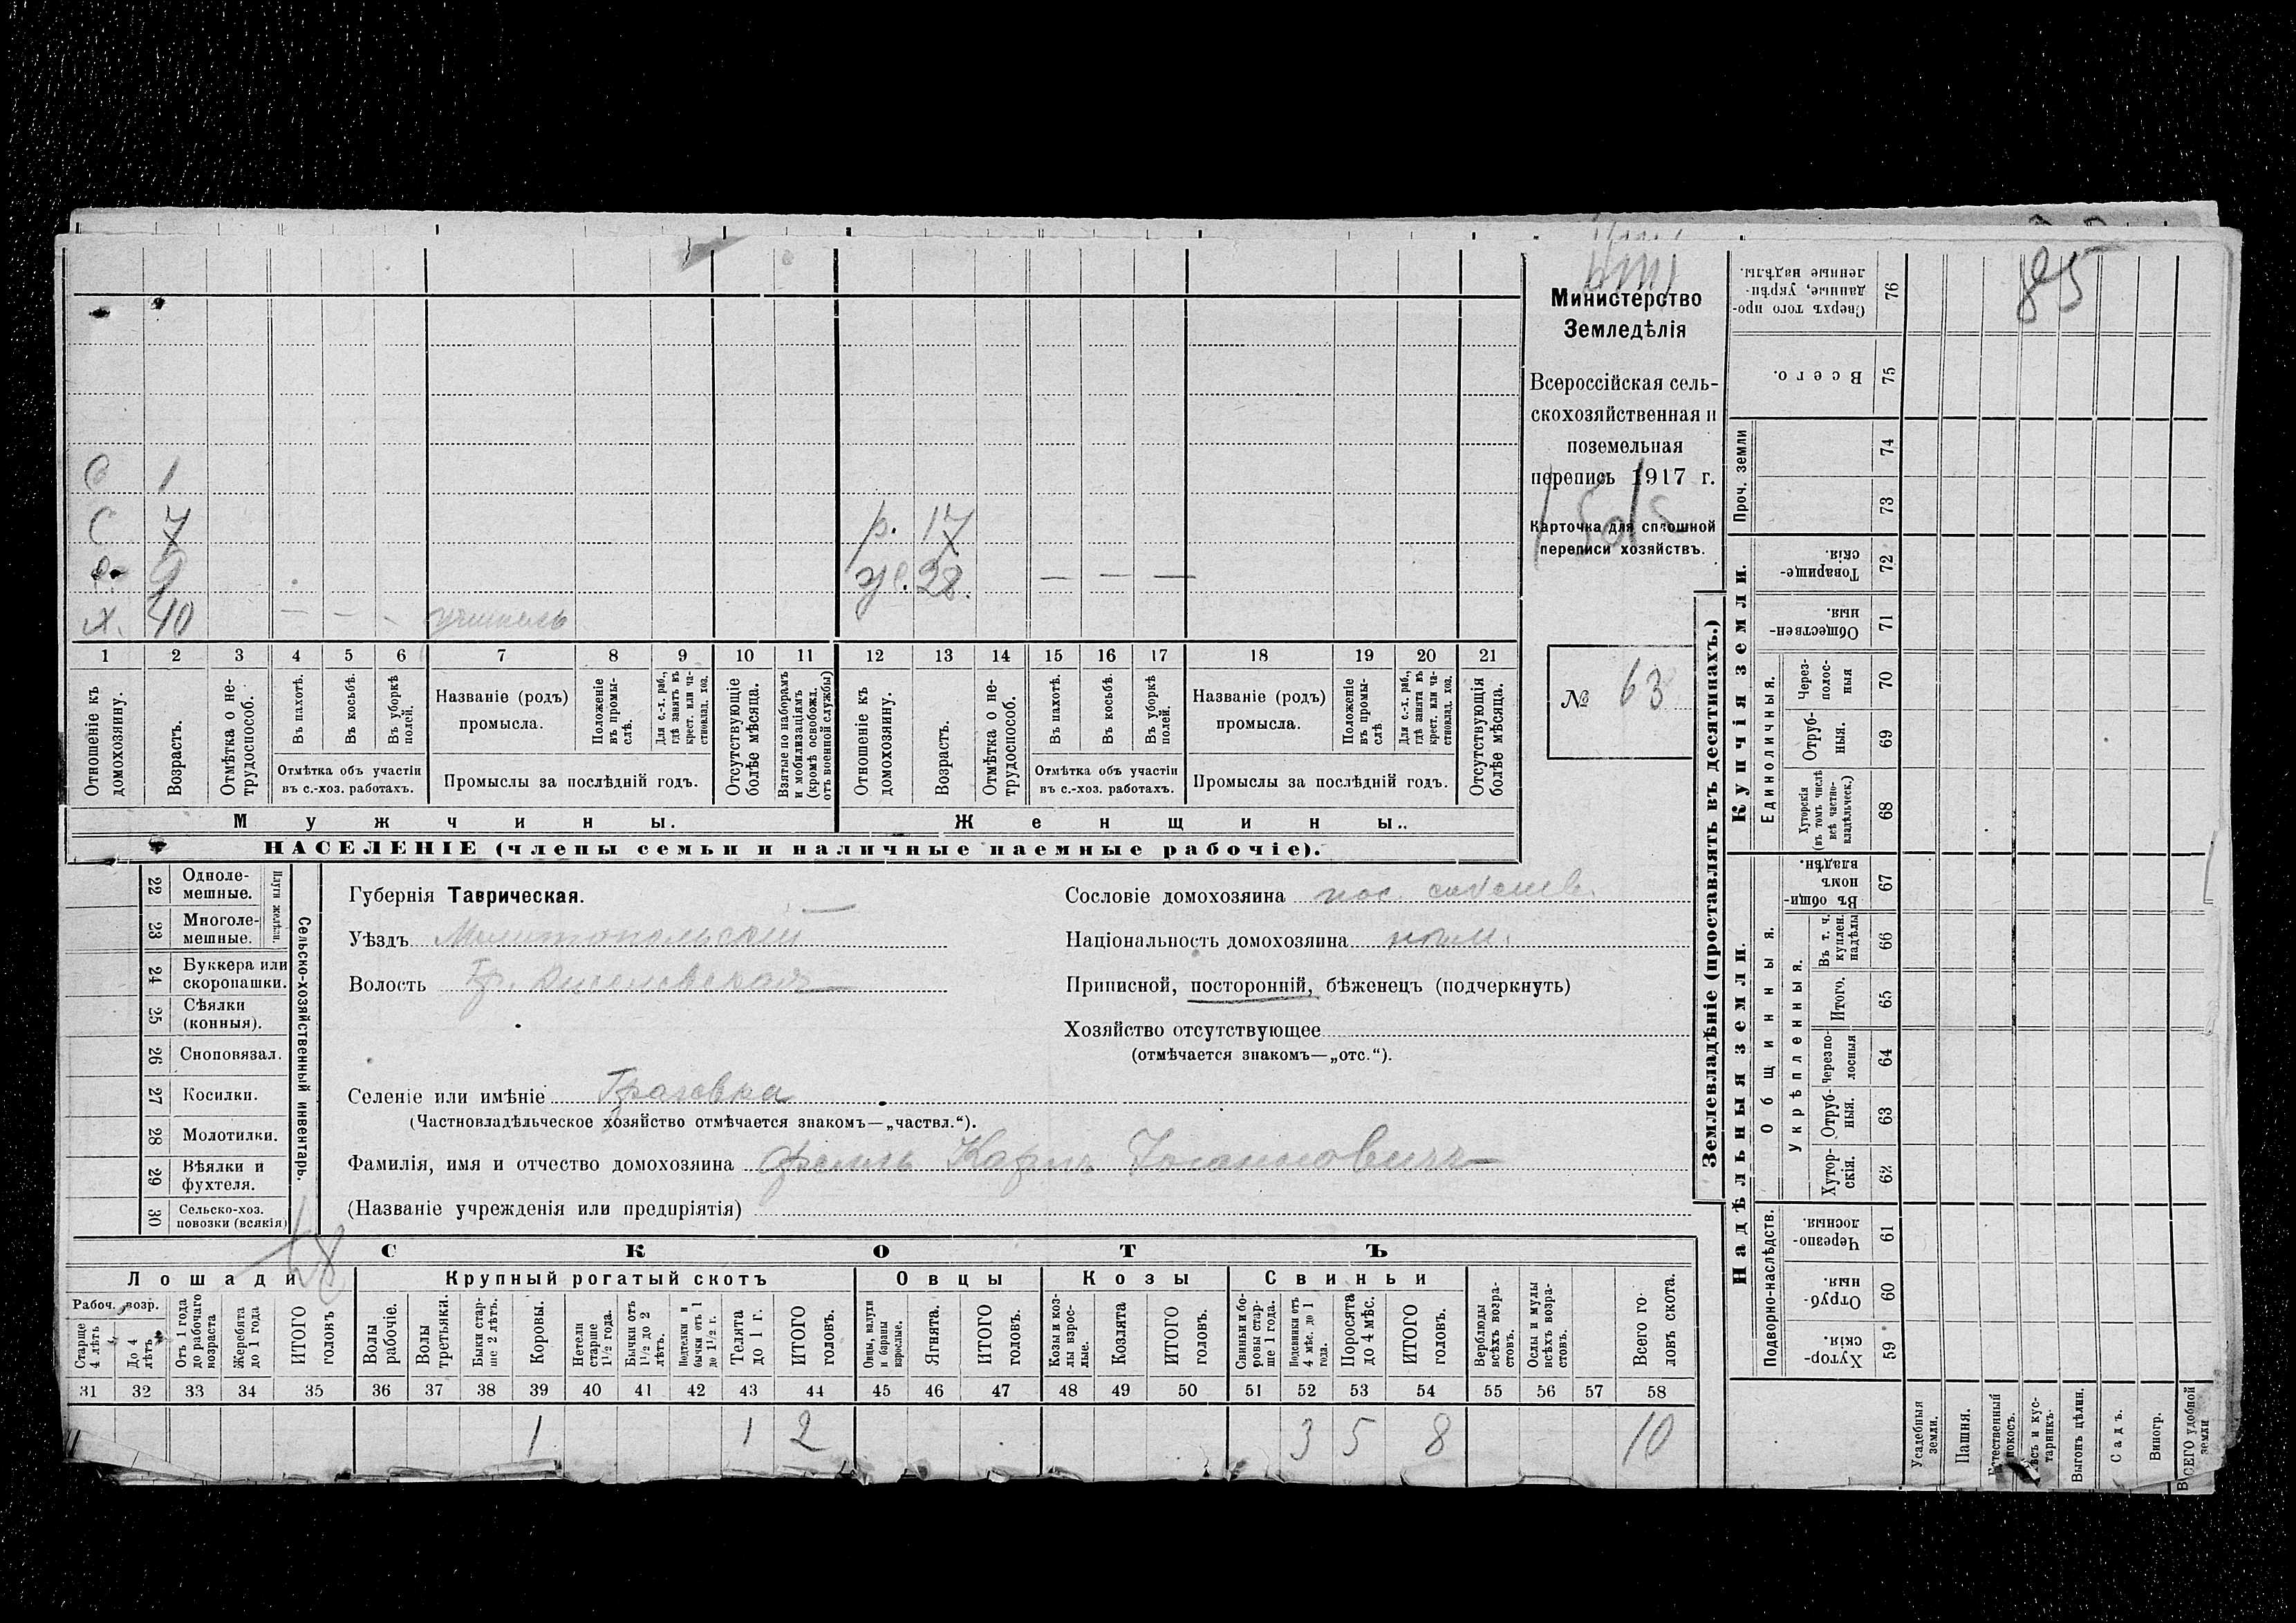 С 1
С 7 р. 17
9 ж. 28.
х. 40 — — - учитель — — —
1 2 3 4 5 6 7 8 9 10 11 12 13 14 15 16 17 18 19 20 21
Отношеніе къ домохозяину.
Возрастъ.
Отмѣтка о не-трудоспособ.
Въ пахотѣ.
Въ косьбѣ.
Въ уборкѣ полей.
Отмѣтка объ участіи въ с.-хоз. работахъ.
Названіе (родъ) промысла.
Положеніе въ промы-слѣ.
Для с.-х. раб., гдѣ занятъ въ крест. или ча-стновлад. хоз.
Промыслы за послѣдній годъ.
Отсутствующіе болѣе мѣсяца.
Взятые по наборамъ и мобилизаціямъ (кромѣ освобожд. отъ военной службы)
Отношеніе къ домохозяину.
Возрастъ.
Отмѣтка о не-трудоспособ.
Въ пахотѣ.
Въ косьбѣ.
Въ уборкѣ полей.
Отмѣтка объ участіи въ с.-хоз. работахъ.
Названіе (родъ) промысла.
Положеніе въ промы-слѣ
Для с.-х. раб., гдѣ занята въ крест. или ча-стновлад. хоз.
Промыслы за послѣдній годъ.
Отсутствующія болѣе мѣсяца.
Мужчины.
Женщины..
НАСЕЛЕНІЕ (члены семьи и наличные наемные рабочіе).
Министерство
Земледѣлія
Всероссійская сель-
скохозяйственная и
поземельная
перепись 1917 г.
Карточка для сплошной
переписи хозяйствъ.
№ 63
22 Однолемешные.
23 Многоле-мешные.
Плуги желѣзн.
24 Буккера или скоропашки.
25 Сѣялки (конныя).
26 Сноповязал.
27 Косилки.
28 Молотилки.
29 Вѣялки и фухтеля.
30 Сельско-хоз. повозки (всякія)
Сельско-хозяйственный инвентарь.
Губернія Таврическая.
Уѣздъ Мелитопольскій
Волость
Сословіе домохозяина пос. собств.
Національность домохозяина нѣм.
Приписной, посторонній, бѣженецъ (подчеркнуть)
Хозяйство отсутствующее
(отмѣчается знакомъ—„отс.“).
Селеніе или имѣніе
(Частновладѣльческое хозяйство отмѣчается знакомъ—„частвл.“).
Фамилія, имя и отчество домохозяина Карлъ
(Названіе учрежденія или предпріятія)
18
СКОТЪ
Лошади Крупный рогатый скотъ Овцы Козы Свиньи
Рабоч. возр.
Старше 4 лѣтъ
До 4 лѣтъ
Отъ 1 года до рабочаго возраста
Жеребята до 1 года
ИТОГО головъ
Волы рабочіе.
Волы третьяки.
Быки стар-ше 2 лѣтъ.
Коровы.
Нетели старше 1½ года.
Бычки отъ 1½ до 2 лѣтъ.
Подтелки и бычки отъ 1 до 1½ г.
Телята до 1 г.
ИТОГО головъ.
Овцы, валухи и бараны взрослые.
Ягнята.
ИТОГО головъ.
Козы и коз-лы взрос-лые.
Козлята
ИТОГО головъ.
Свиньи и бо-ровы стар-ше 1 года.
Подсвинки отъ 4 мѣс. до 1 года.
Поросята до 4 мѣс.
ИТОГО головъ.
Верблюды всѣхъ возра-стовъ.
Ослы и мулы всѣхъ возра-стовъ.
Всего го-ловъ скота.
31 32 33 34 35 36 37 38 39 40 41 42 43 44 45 46 47 48 49 50 51 52 53 54 55 56 57 58
1 1 2 3 5 8 10
Землевладѣніе (проставлять въ десятинахъ.)
Надѣльныя земли.
Купчія земли.
Проч. земли
Подворно-наслѣдств.
Общинныя.
Укрѣпленныя.
Единоличныя.
Сверхъ того про-данные, укрѣп-ленные надѣлы. 76
Всего. 75
74
73
Товарище-скія. 72
Обществен-ныя. 71
Через-полос-ныя 70
Отруб-ныя. 69
Хуторскія (въ томъ числѣ всѣ частно-владѣльческ.) 68
Въ общи-номъ владѣн. 67
Въ т. ч. куплен. надѣлы 66
Итого. 65
Черезпо-лосныя 64
Отруб-ныя. 63
Хутор-скія. 62
Черезпо-лосныя. 61
Отруб-ныя. 60
Хутор-скія. 59
85
Усадебныя земли.
Пашня.
Естественный покосъ.
Лѣсъ и кус-тарникъ.
Выгонъ цѣлин.
Садъ.
Виногр.
ВСЕГО удобной земли